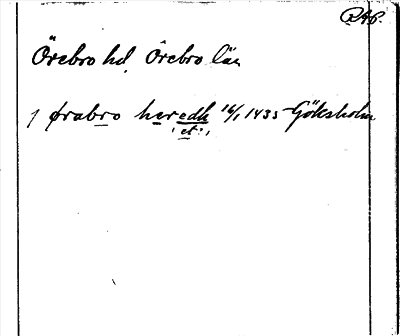 RAP.
Örebro hd, Örebro län
J ørabro heredh 16/1 1433 Göksholm
et